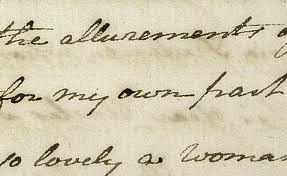 the allurements of
for my own part
so lovely a woman